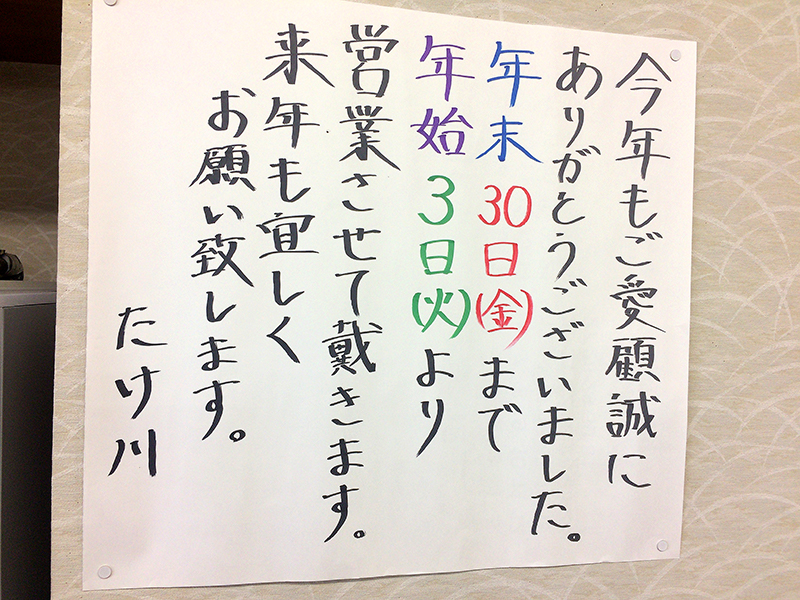 今年もご愛顧誠に
ありがとうございました。
年末30日(金)まで
年始3日(火)より
営業させて戴きます。
来年も宜しく
お願い致します。
たけ川